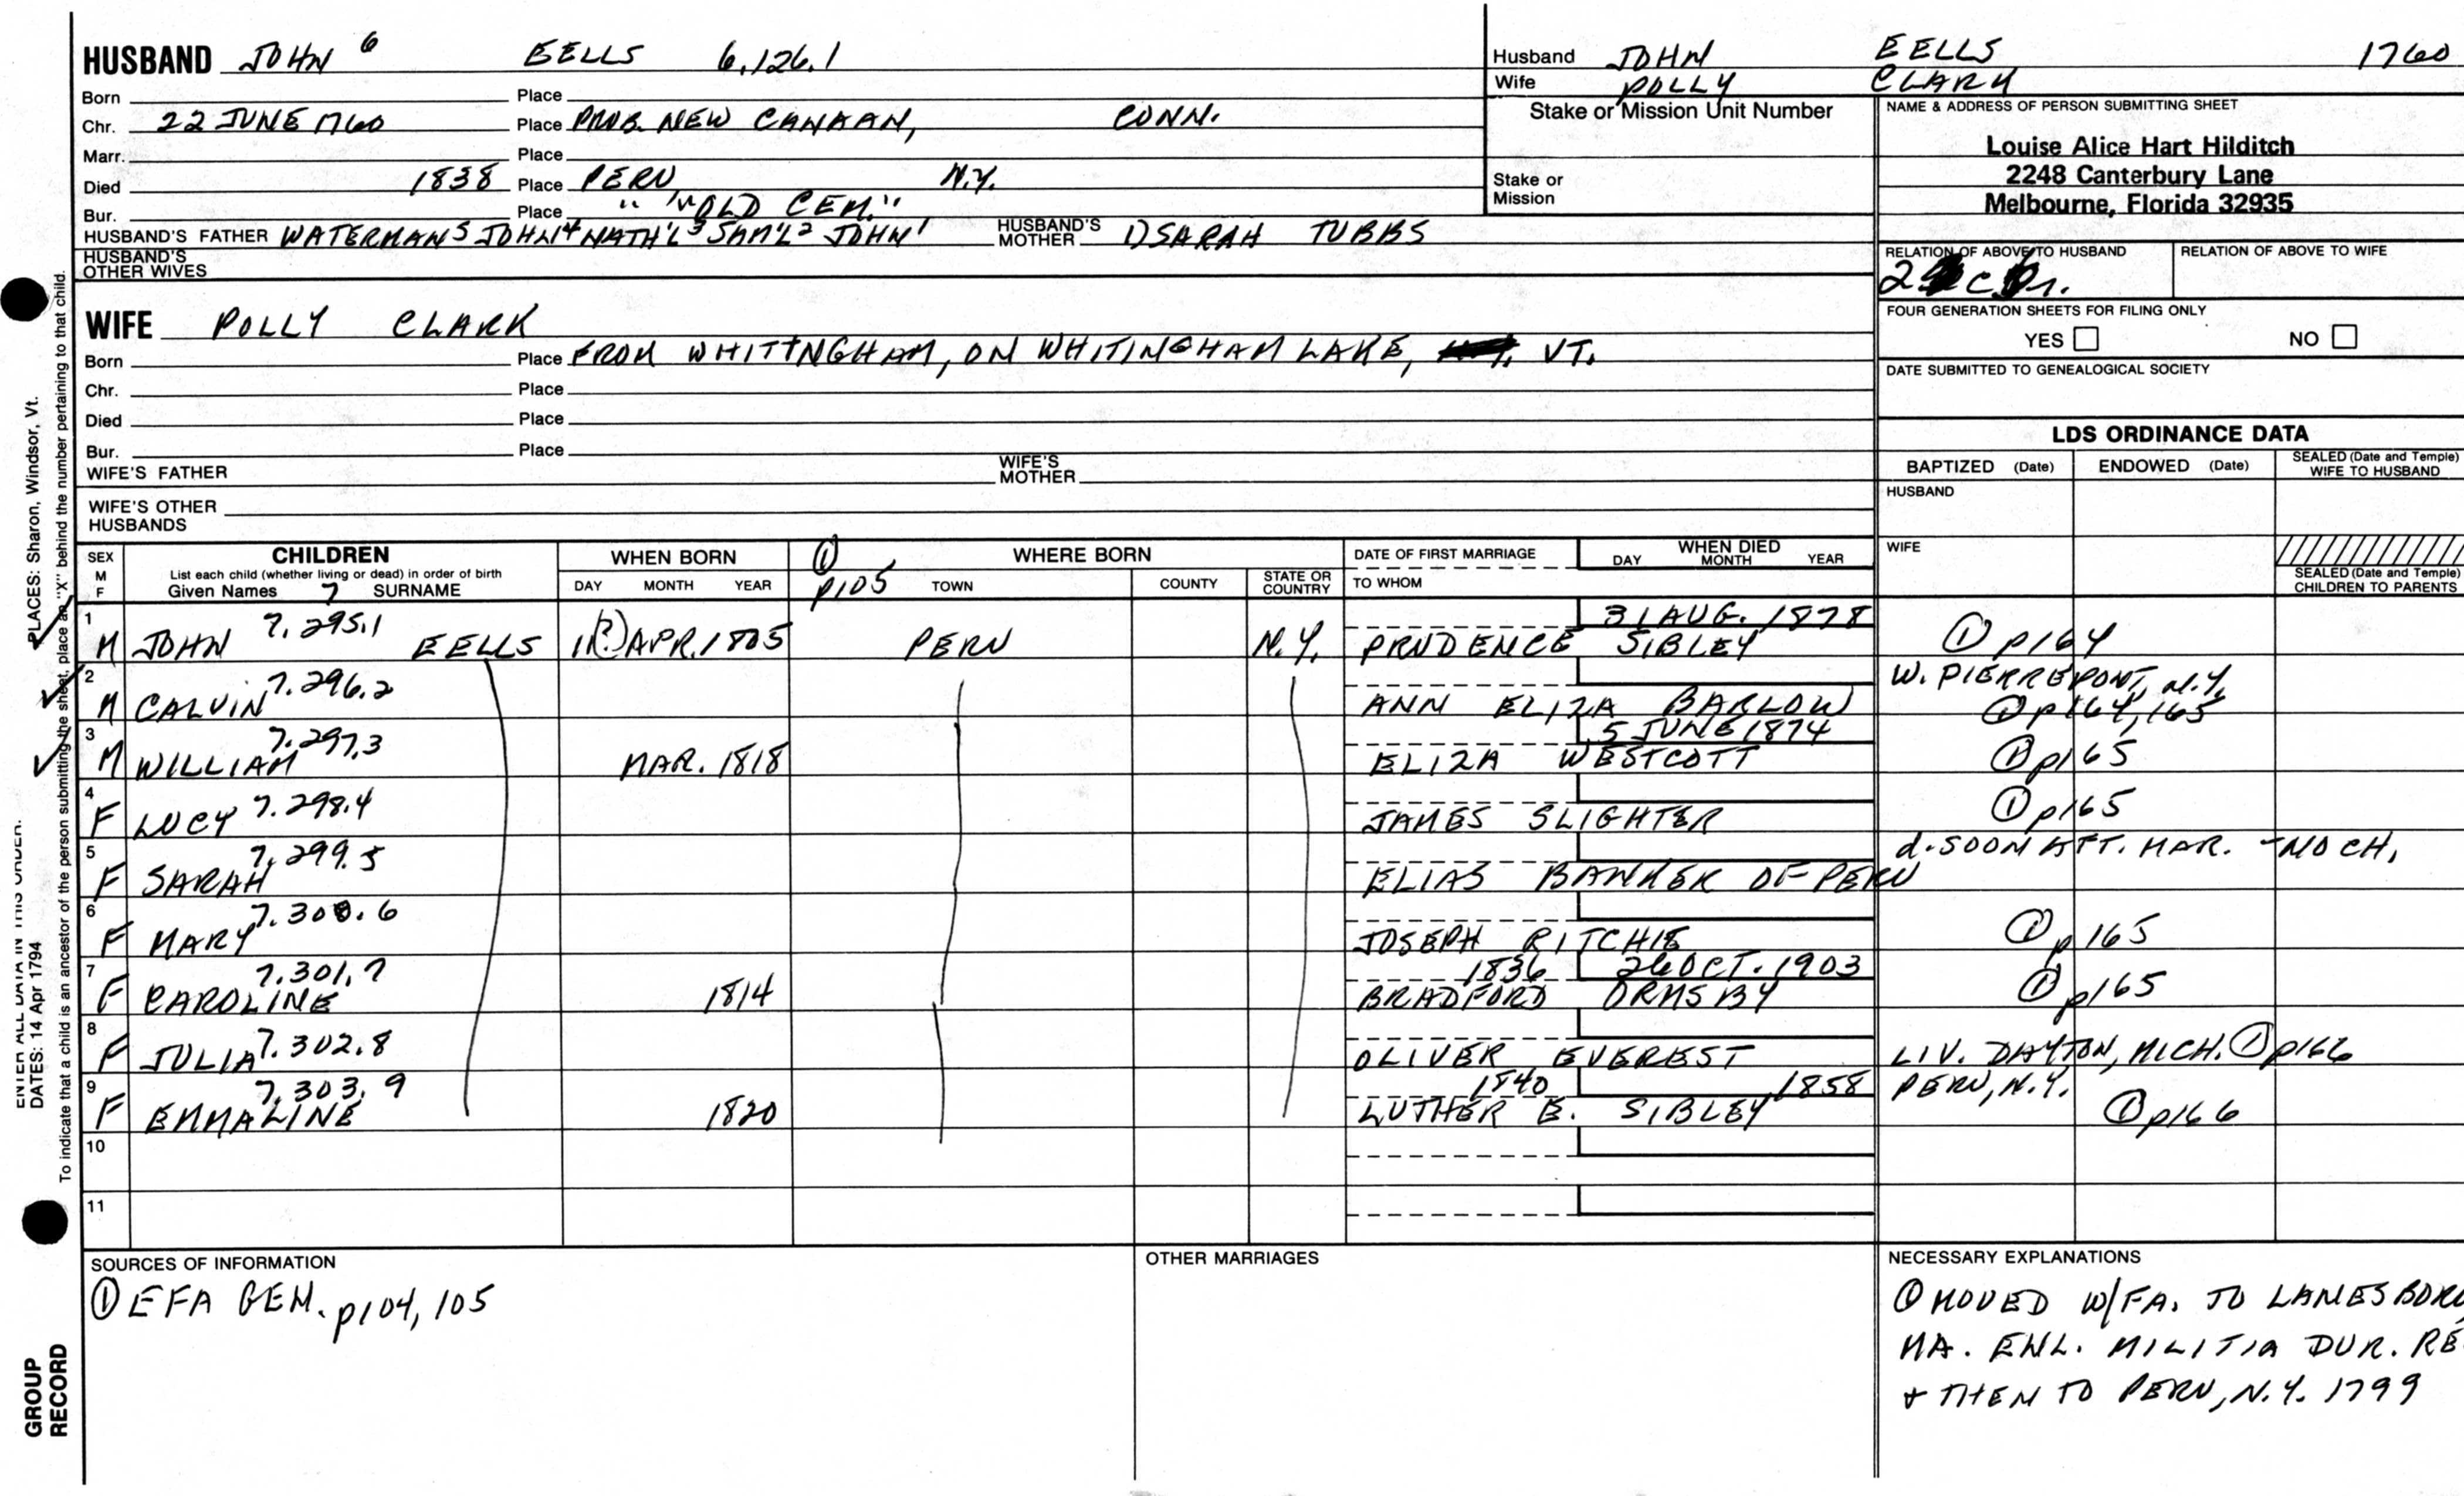 HUSBAND JOHN 6 EELLS 6.126.1
Born Place
Chr. 22 JUNE 1760 Place PROB. NEW CANAAN, CONN.
Marr. Place
Died 1838 Place PERU N.Y.
Bur. Place " "OLD CEM."
HUSBAND'S FATHER WATERMAN5 JOHN4 NATH'L3 SAM'L2 JOHN1 HUSBAND'S MOTHER 1) SARAH TUBBS
HUSBAND'S OTHER WIVES
Husband JOHN EELLS 1760
Wife POLLY CLARK
Stake or Mission Unit Number
Stake or Mission
NAME & ADDRESS OF PERSON SUBMITTING SHEET
Louise Alice Hart Hilditch
2248 Canterbury Lane
Melbourne, Florida 32935
RELATION OF ABOVE TO HUSBAND RELATION OF ABOVE TO WIFE
FOUR GENERATION SHEETS FOR FILING ONLY
YES NO
DATE SUBMITTED TO GENEALOGICAL SOCIETY
WIFE POLLY CLARK
Born Place FROM WHITINGHAM, ON WHITINGHAM LAKE, VT.
Chr. Place
Died Place
Bur. Place
WIFE'S FATHER WIFE'S MOTHER
WIFE'S OTHER HUSBANDS
LDS ORDINANCE DATA
BAPTIZED (Date) ENDOWED (Date) SEALED (Date and Temple) WIFE TO HUSBAND
HUSBAND
WIFE
SEALED (Date and Temple) CHILDREN TO PARENTS
SEX M F CHILDREN WHEN BORN ① p105 WHERE BORN DATE OF FIRST MARRIAGE WHEN DIED
List each child (whether living or dead) in order of birth
Given Names 7 SURNAME DAY MONTH YEAR TOWN COUNTY STATE OR COUNTRY TO WHOM DAY MONTH YEAR
1 7.295.1 31 AUG. 1878
M JOHN EELLS 1(?) APR. 1805 PERU N.Y. PRUDENCE SIBLEY ① p164
2 7.296.2 W. PIERREPONT, N.Y.
M CALVIN ANN ELIZA BARLOW ① p164, 165
3 7.297.3 5 JUNE 1874
M WILLIAM MAR. 1818 ELIZA WESTCOTT ① p165
4 7.298.4
F LUCY JAMES SLIGHTER ① p165
5 7.299.5 d. SOON AFT. MAR. - NO CH.
F SARAH ELIAS BANKER OF PERU
6 7.300.6
F MARY JOSEPH RITCHIE ① p165
7 7.301.7 1836 26 OCT. 1903
F CAROLINE 1814 BRADFORD ORMSBY ① p165
8 7.302.8
F JULIA OLIVER EVEREST LIV. DAYTON, MICH. ① p166
9 7.303.9 1840 1858 PERU, N.Y.
F EMMALINE 1820 LUTHER B. SIBLEY ① p166
10
11
SOURCES OF INFORMATION
① EFA GEN. p104, 105
OTHER MARRIAGES
NECESSARY EXPLANATIONS
① MOVED W/FA. TO LANESBORO
MA. ENL. MILITIA DUR. RE
+ THEN TO PERU, N.Y. 1799
PLACES: Sharon, Windsor, Vt.
To indicate that a child is an ancestor of the person submitting the sheet, place an "X" behind the number pertaining to that child.
ENTER ALL DATA IN THIS ORDER:
DATES: 14 Apr 1794
GROUP
RECORD